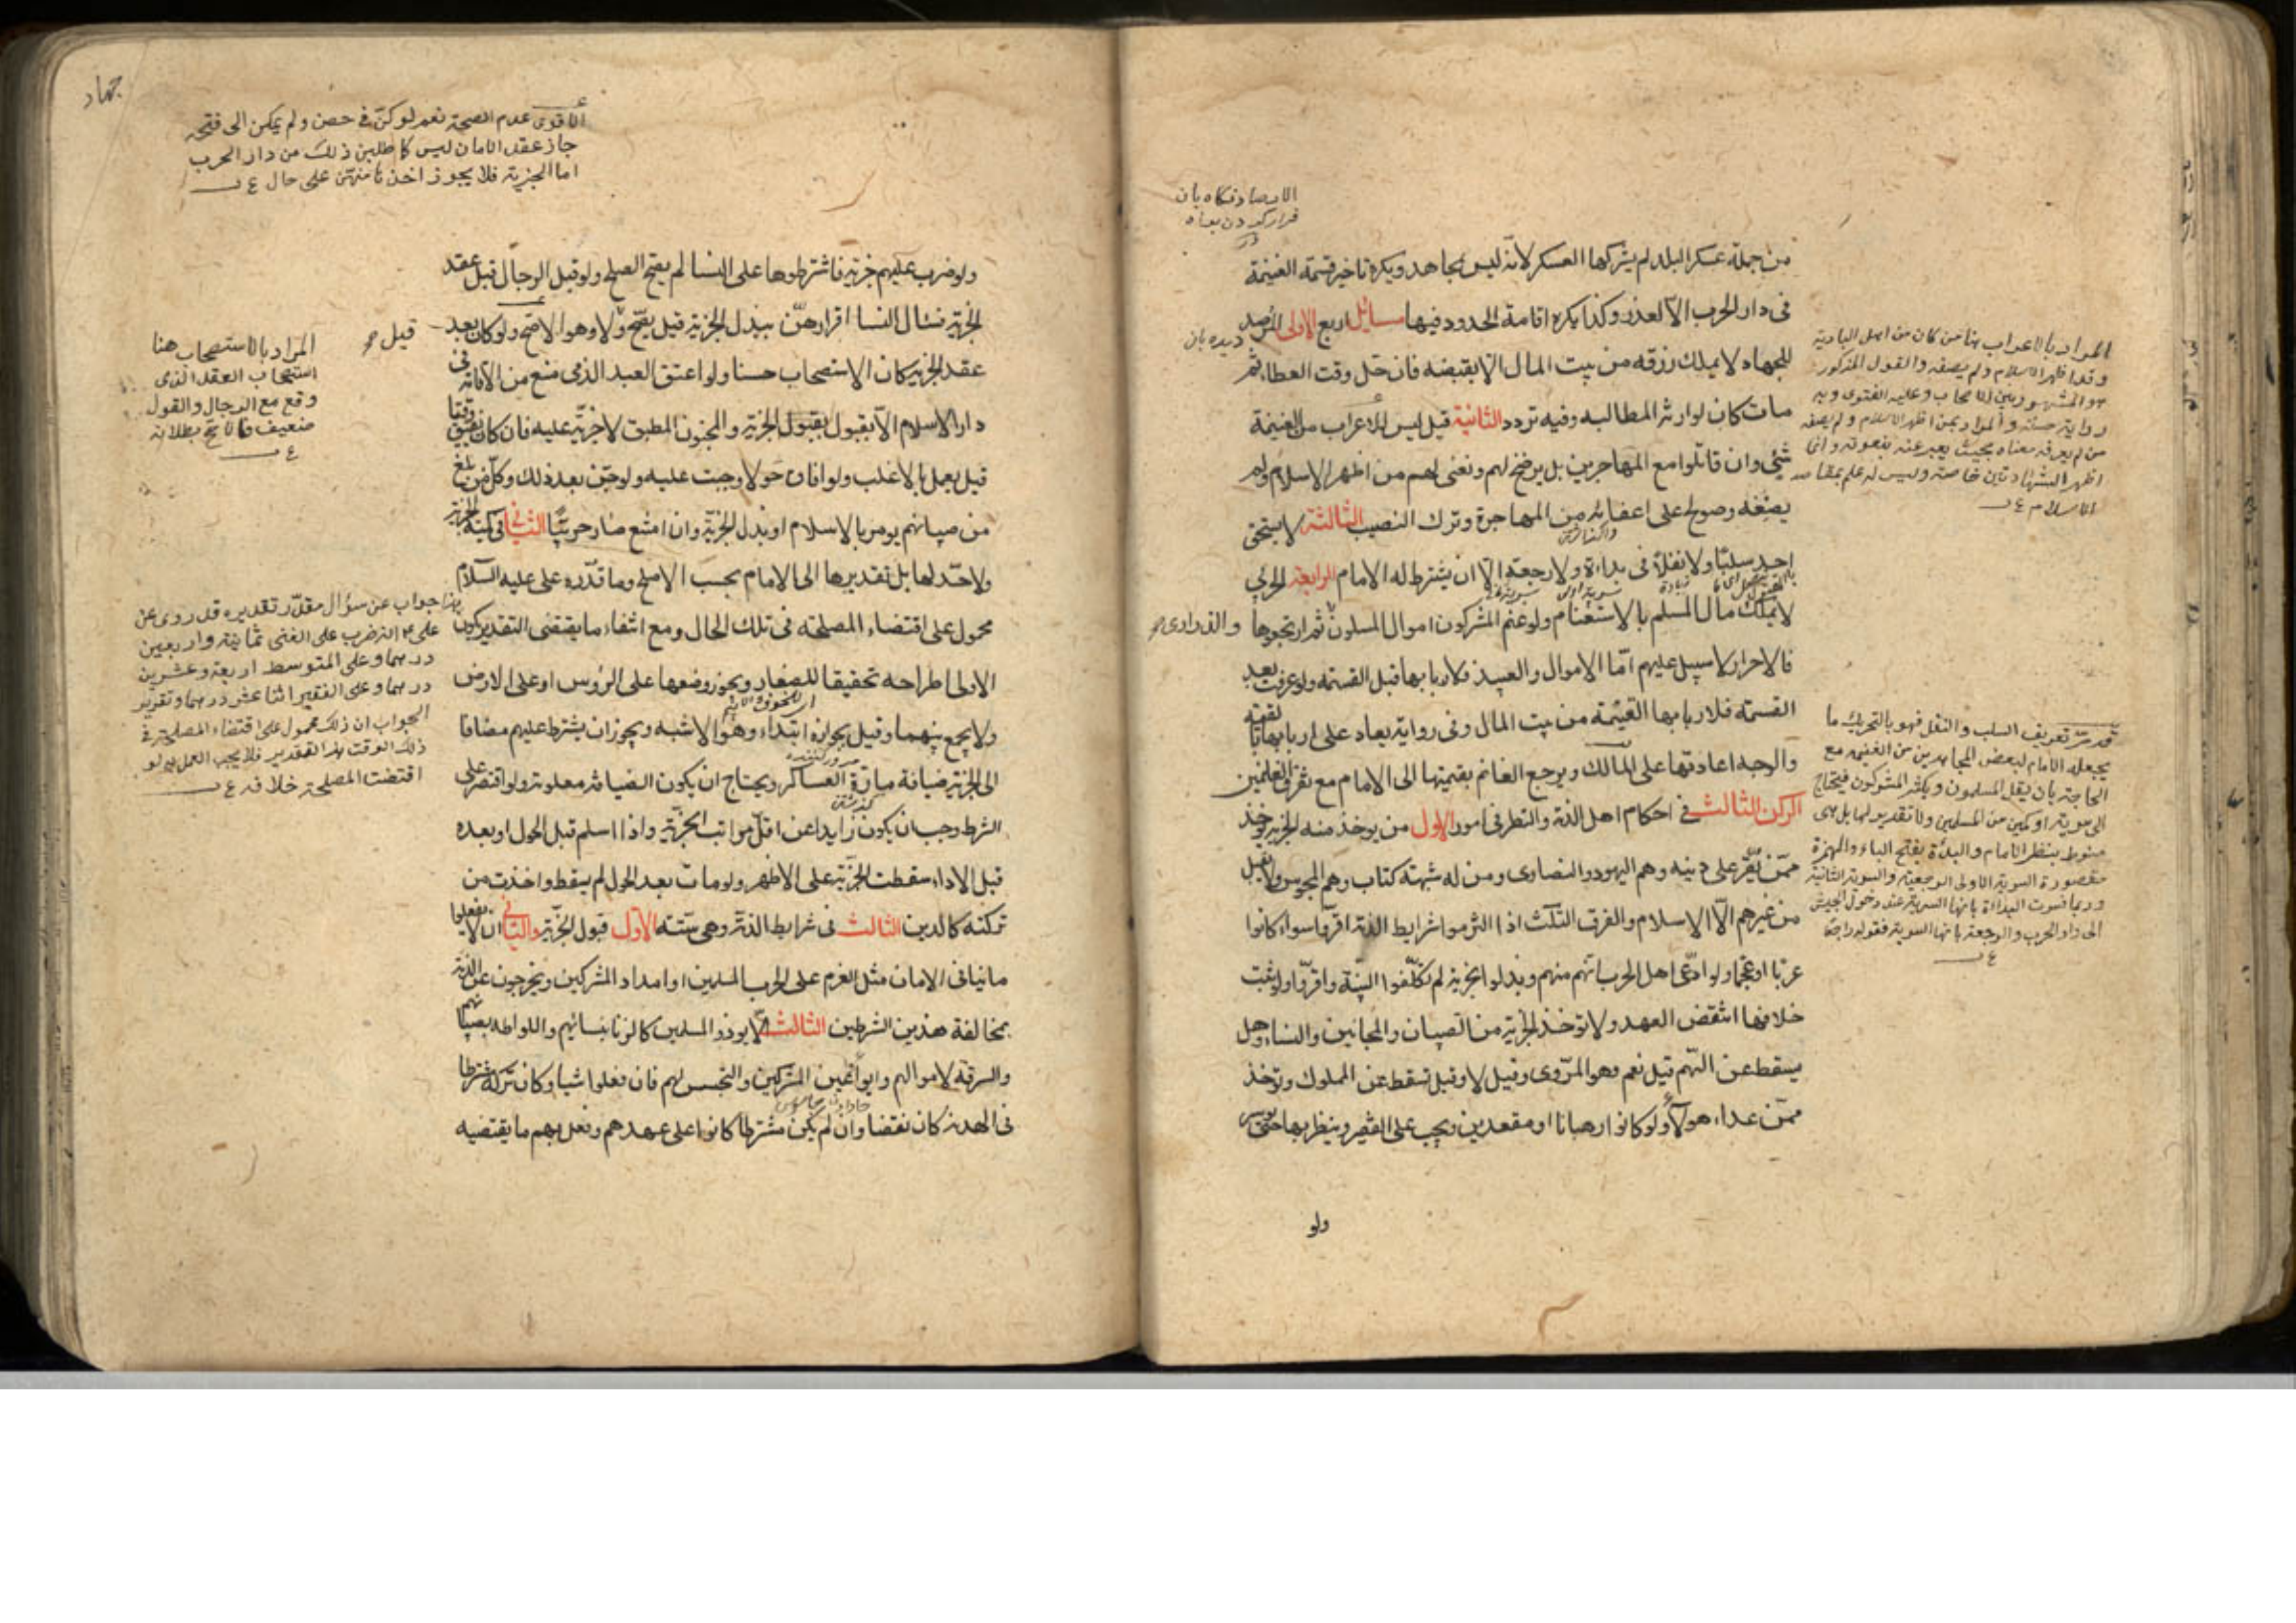 الارصاد نكاه بان
قرار كردن براه
من جملة عسكر البلد لم يشركها العسكر لانه ليس بمجاهد ويكره تاخير قسمة الغنيمة
فى دار الحرب الا لعذر وكذا يكره اقامة الحدود فيها مسائل اربع الاولى المرصد
ديده بان
للجهاد لا يملك رزقه من بيت المال الا بقبضه فان حل وقت العطاء ثم
مات كان لوارثه المطالبه وفيه تردد الثانية قيل ليس للاعراب من الغنيمة
شئ وان قاتلوا مع المهاجرين بل يرضخ لهم ونعنى بهم من اظهر الاسلام ولم
يصفه وصولح على اعفائه من المهاجرة وترك النصيب الثالثة لا يستحق
احد سلبا ولا نفلا فى بداءة ولا رجعة الا ان يشترط له الامام الرابعة الحربي
لا يملك مال المسلم بالاستغنام ولو غنم المشركون اموال المسلمين ثم ارتجعوها
والذرارى صح
فالاحرار لا سبيل عليهم اما الاموال والعبيد فلاربابها قبل القسمة ولو عرفت بعد
القسمة فلاربابها القيمة من بيت المال وفى رواية يعاد على اربابها بالقيمة
والوجه اعادتها على المالك ويرجع الغانم بقيمتها الى الامام مع تفرق الغانمين
الركن الثالث فى احكام اهل الذمة والنظر فى امور الاول من يوخذ منه الجزية يوخذ
ممن يقر على دينه وهم اليهود والنصارى ومن له شبهة كتاب وهم المجوس ولا يقبل
من غيرهم الا الاسلام والفرق الثلث اذا التزموا شرايط الذمة اقروا سواء كانوا
عربا او عجما ولو ادعى اهل الحرب انهم منهم وبذلوا الجزية لم يكلفوا البينة واقروا ولو ثبت
خلافها انتقض العهد ولا توخذ الجزية من الصبيان والمجانين والنساء وهل
يسقط عن الهم قيل نعم وهو المروى وقيل لا وقيل تسقط عن المملوك وتوخذ
ممن عدا هولاء ولو كانوا رهبانا او مقعدين ويجب على الفقير وينظر بها حتى يوسر
ولو
المراد بالاعراب هنا من كان من اهل البادية
وقد اظهر الاسلام ولم يصفه والقول المذكور
هو المشهور بين الاصحاب وعليه الفتوى وبه
رواية حسنة والمراد بمن اظهر الاسلام ولم يصفه
من لم يعرف معناه بحيث يعبر عنه بنعوته وانما
اظهر الشهادتين خاصة وليس له علم بمقاصد
الاسلام ع ب
قد مر تعريف السلب والنفل فهو بالتحريك ما
يجعله الامام لبعض المجاهدين من الغنيمة مع
الحاجة بان يقل المسلمون ويكثر المشركون فيحتاج
الى سرية او كمين من المسلمين ولا تقدير لها بل هى
منوط بنظر الامام والبدأة بفتح الباء والهمزة
مقصورة السرية الاولى الرجعية والسرية الثانية
وربما فسرت البداءة بانها السرية عند دخول الجيش
الى دار الحرب والرجعة بانها السرية فقوله راجعا
ع ب
جهاد
الاقوى عدم الصحة نعم لو كن فى حصن ولم يمكن الى فتحه
جاز عقد الامان ليس كاطلبن ذلك من دار الحرب
اما الجزية فلا يجوز اخذها منهن على حال ع ب
ولو ضرب عليهم جزية فاشترطوها على النسا لم يصح الصلح ولو قبل الرجال قبل عقد
الجزية فسال النسا اقرارهن ببذل الجزية قيل يصح ولا وهو الاصح ولو كان بعد
قيل صح
عقد الجزية كان الاستصحاب حسنا ولو اعتق العبد الذمى منع من الاقامة فى
دار الاسلام الا بقبول بقبول الجزية والمجنون المطبق لا جزية عليه فان كان يفيق وقتا
قيل يعمل بالاغلب ولو افاق حولا وجبت عليه ولو جن بعد ذلك وكل من بلغ
من صبيانهم يومر بالاسلام او بذل الجزية وان امتنع صار حربيا الثانى فى كمية الجزية
ولا حد لها بل تقديرها الى الامام بحسب الاصلح وما قدره على عليه السلام
محمول على اقتضاء المصلحه فى تلك الحال ومع انتفاء ما يقتضى التقدير يكون
الاولى اطراحه تحقيقا للصغار ويجوز وضعها على الرؤس او على الارض
ولا يجمع بينهما وقيل بجوازه ابتداء وهو الاشبه ويجوز ان يشترط عليهم مضافا
الى الجزية ضيافة مارة العساكر ويحتاج ان يكون الضيافة معلومة ولو اقتصر على
الشرط وجب ان يكون زايدا عن اقل مراتب الجزية واذا اسلم قبل الحول او بعده
قبل الاداء سقطت الجزية على الاظهر ولو مات بعد الحول لم يسقط واخذت من
تركته كالدين الثالث فى شرايط الذمة وهى ستة الاول قبول الجزية والثانى ان لا يفعلوا
ما ينافى الامان مثل العزم على الحرب المسلمين او امداد المشركين ويخرجون عن الذمة
بمخالفة هذين الشرطين الثالث الا يوذوا المسلمين كالزنا بنسائهم واللواط بصبيانهم
والسرقه لاموالهم وايواء عين المشركين والتجسس لهم فان فعلوا شيا وكان تركه شرطا
فى الهدنة كان نقضا وان لم يكن مشترطا كانوا على عهدهم وفعل بهم ما يقتضيه
المراد بالاستصحاب هنا
استصحاب العقد الذى
وقع مع الرجال والقول
ضعيف فالاصح بطلانه
ع ب
هذا جواب عن سؤال مقدر تقديره قد روى عن
على ع انه ضرب على الغنى ثمانية واربعين
درهما وعلى المتوسط اربعة وعشرين
درهما وعلى الفقير اثنا عشر درهما وتقرير
الجواب ان ذلك محمول على اقتضاء المصلحة فى
ذلك الوقت بهذا التقدير فلا يجب العمل به لو
اقتضت المصلحة خلافه ع ب